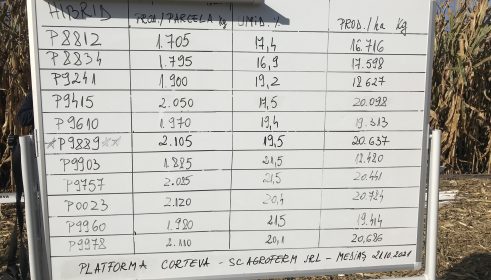 HIBRID PROD./PARCELA kg UMID. % PROD./ha Kg
P8812 1.705 17,4 16.716
P8834 1.795 16,9 17.598
P9241 1.900 19,2 18.627
P9415 2.050 17,5 20.098
P9610 1.970 19,4 19.313
*P9889** 2.105 19,5 20.637
P9903 1.885 21,5 18.480
P9757 2.085 21,5 20.441
P0023 2.120 20,4 20.784
P9960 1.980 21,5 19.414
P9978 2.110 20,1 20.686
PLATFORMA CORTEVA - SC AGROFERM SRL - MEDIAȘ 21.10.2021